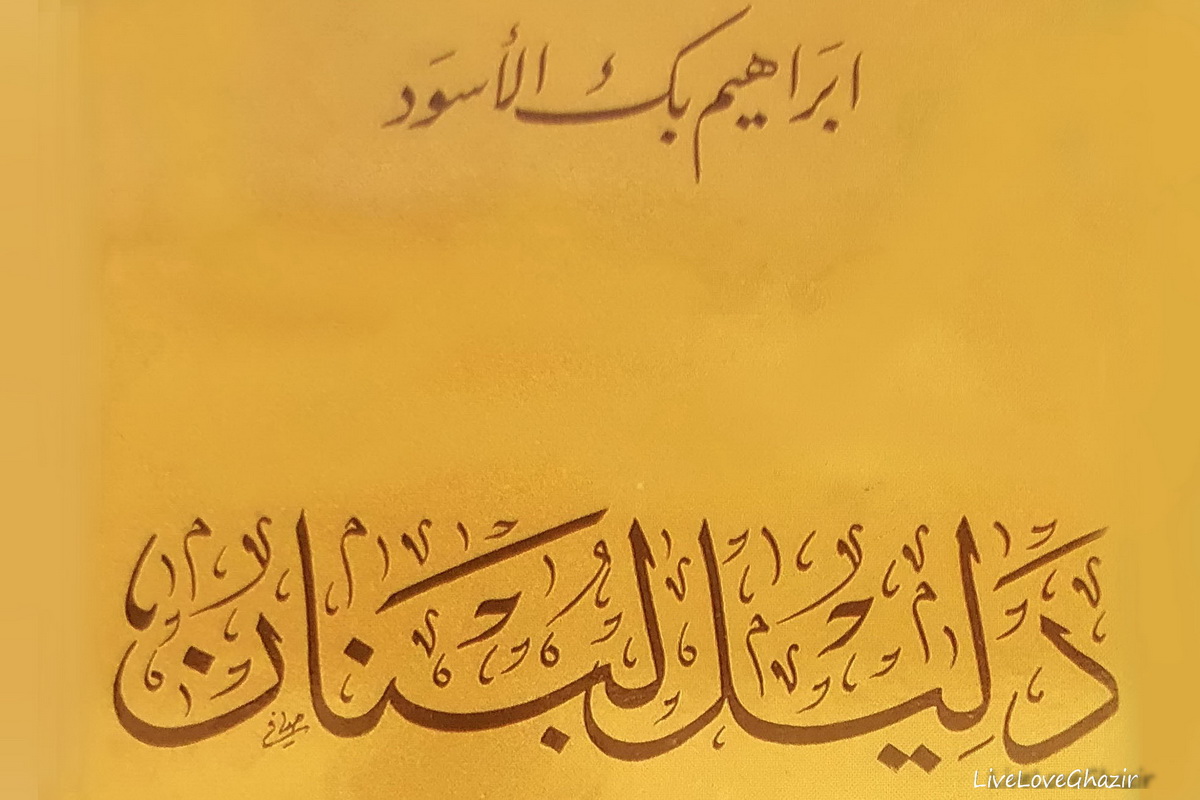 ابَراهيم بك الأسوَد
دَليل لبُنان
LiveLoveGhazir